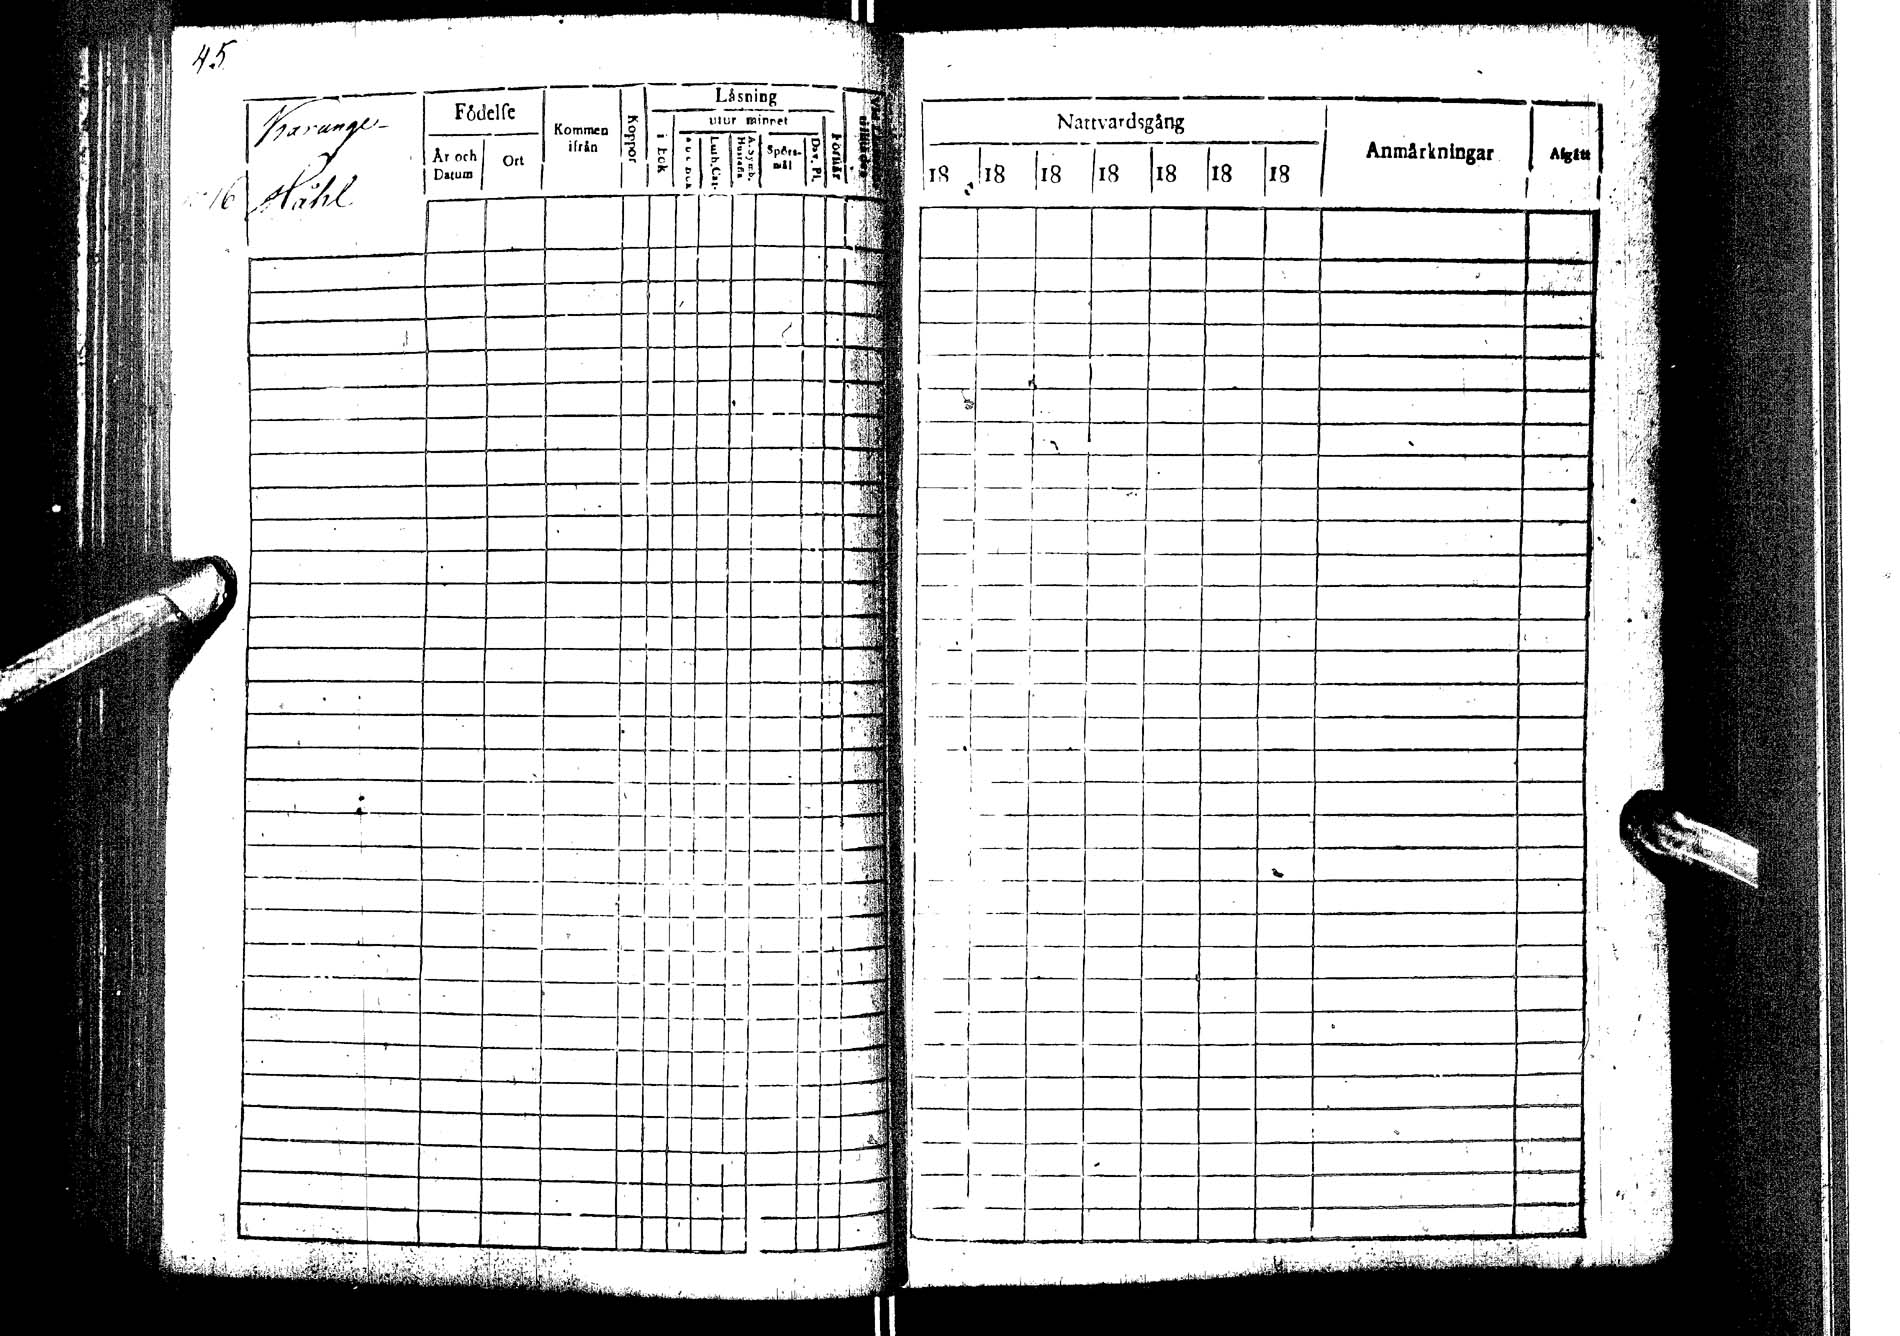 45
Födelse
År och Datum
Ort
Kommen ifrån
Koppor
Läsning
i bok
utur minnet
Luth. Cat.
A. Symb. Hustafla
Spörs-mål
Dav. Ps.
Förstår
16 Ståhl
Nattvardsgång
18 18 18 18 18 18 18
Anmärkningar
Afgått